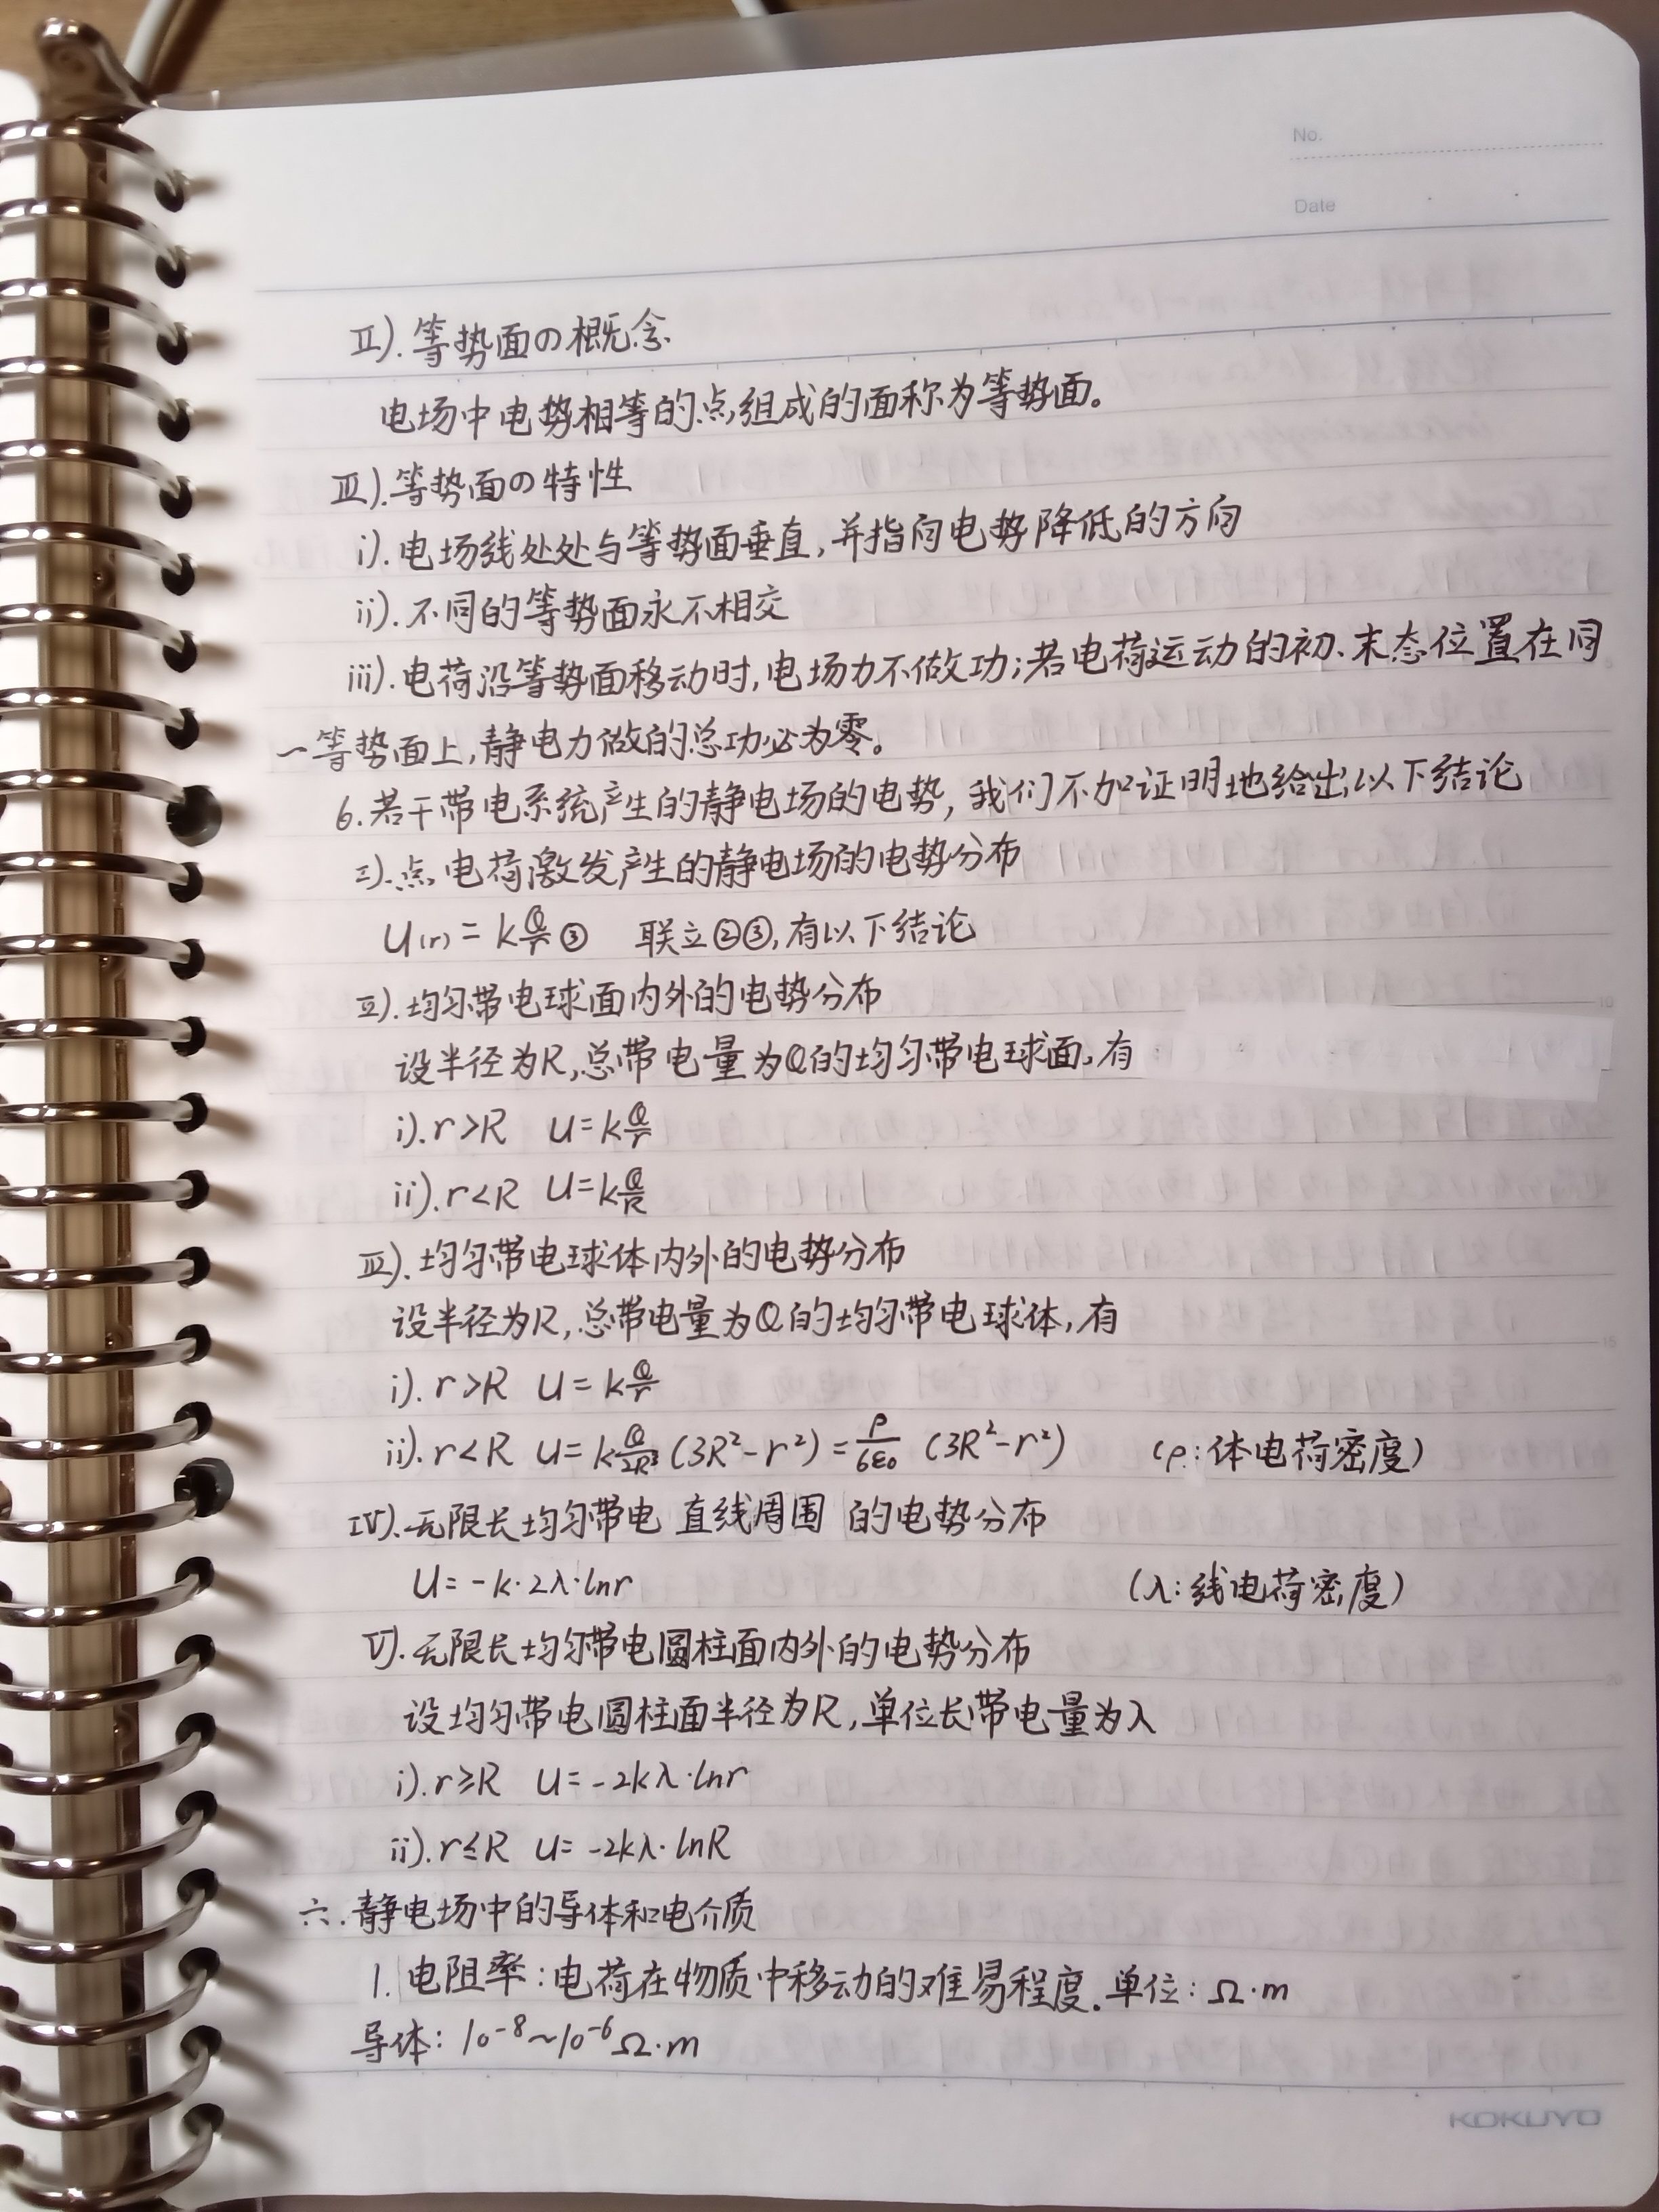 No.
Date
II).等势面の概念
电场中电势相等的点组成的面称为等势面。
III).等势面の特性
i).电场线处处与等势面垂直,并指向电势降低的方向
ii).不同的等势面永不相交
iii).电荷沿等势面移动时,电场力不做功;若电荷运动的初、末态位置在同
一等势面上,静电力做的总功必为零。
6.若干带电系统产生的静电场的电势,我们不加证明地给出以下结论
I).点电荷激发产生的静电场的电势分布
U(r)=kQ/r ③ 联立②③,有以下结论
II).均匀带电球面内外的电势分布
设半径为R,总带电量为Q的均匀带电球面,有
i).r>R U=kQ/r
ii).r<R U=kQ/R
III).均匀带电球体内外的电势分布
设半径为R,总带电量为Q的均匀带电球体,有
i).r>R U=kQ/r
ii).r<R U=kQ/2R³(3R²-r²)=ρ/6ε₀(3R²-r²) (ρ:体电荷密度)
IV).无限长均匀带电直线周围的电势分布
U=-k·2λ·lnr (λ:线电荷密度)
V).无限长均匀带电圆柱面内外的电势分布
设均匀带电圆柱面半径为R,单位长带电量为λ
i).r≥R U=-2kλ·lnr
ii).r≤R U=-2kλ·lnR
六.静电场中的导体和电介质
1.电阻率:电荷在物质中移动的难易程度.单位:Ω·m
导体:10⁻⁸~10⁻⁶Ω·m
KOKUYO